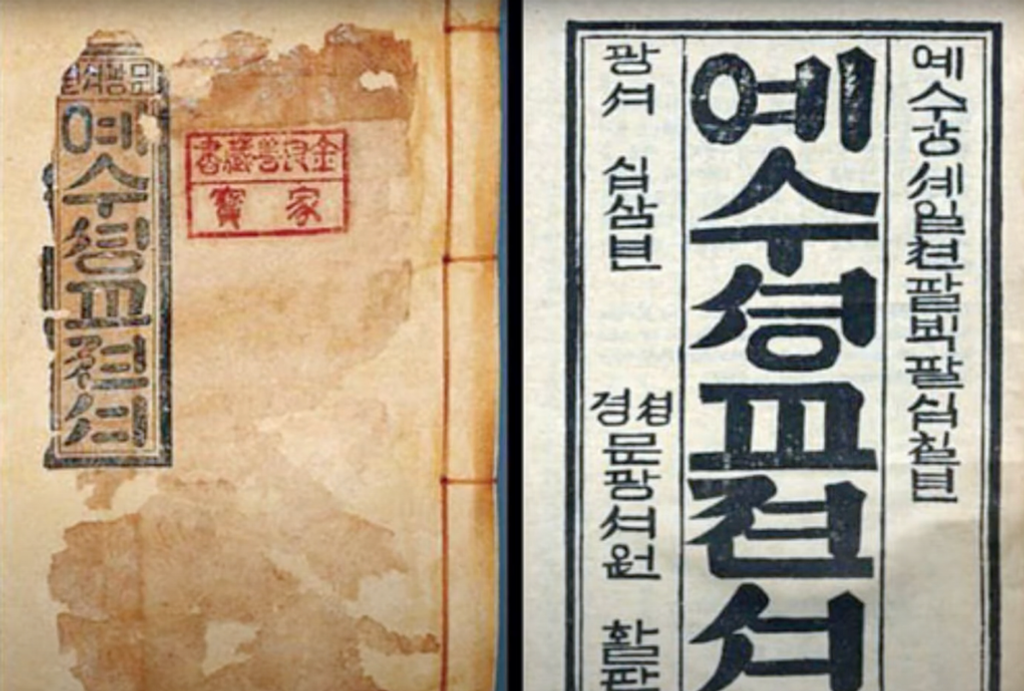 예수셩교젼셔
金良善藏書
家寶
예수강셰일쳔팔빅팔십칠년
예수셩교젼셔
광셔 십삼년 셩경문광셔원 활판